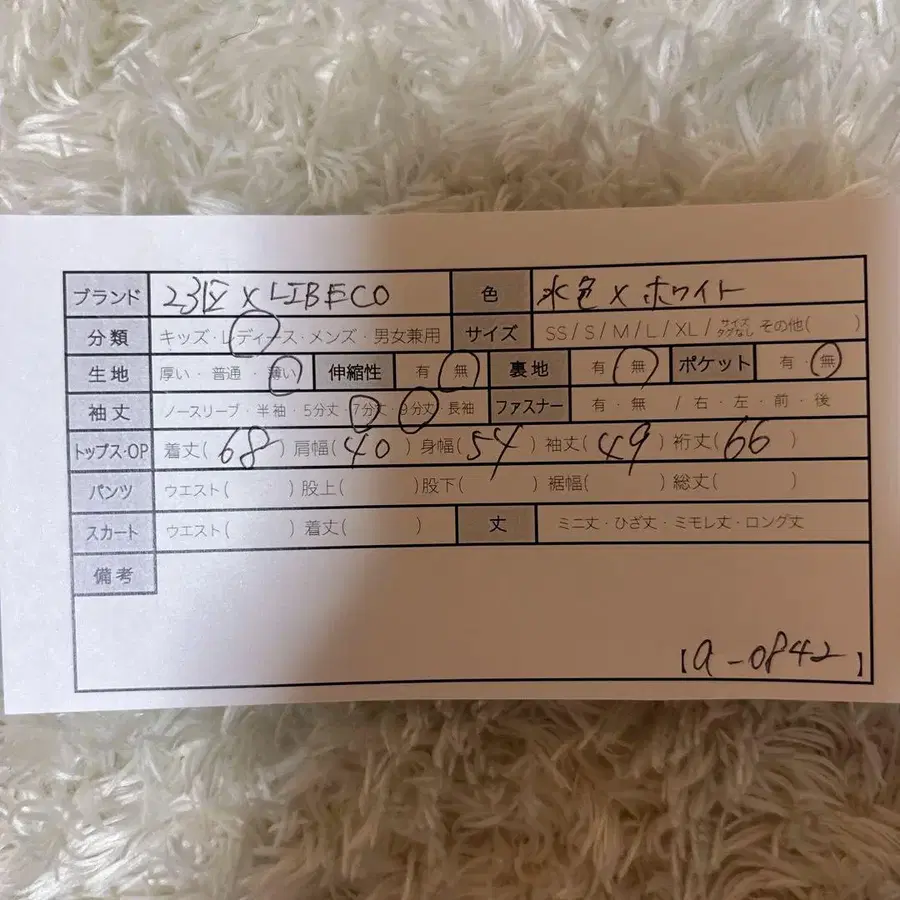 ブランド 23区×LIBECO 色 水色×ホワイト
分類 キッズ・レディース・メンズ・男女兼用 サイズ SS/S/M/L/XL/サイズタグなし その他( )
生地 厚い・普通・薄い 伸縮性 有・無 裏地 有・無 ポケット 有・無
袖丈 ノースリーブ・半袖・5分丈・7分丈・9分丈・長袖 ファスナー 有・無 /右・左・前・後
トップス・OP 着丈(68)肩幅(40)身幅(54)袖丈(49)裄丈(66)
パンツ ウエスト( )股上( )股下( )裾幅( )総丈( )
スカート ウエスト( )着丈( ) 丈 ミニ丈・ひざ丈・ミモレ丈・ロング丈
備考
【a-0842】